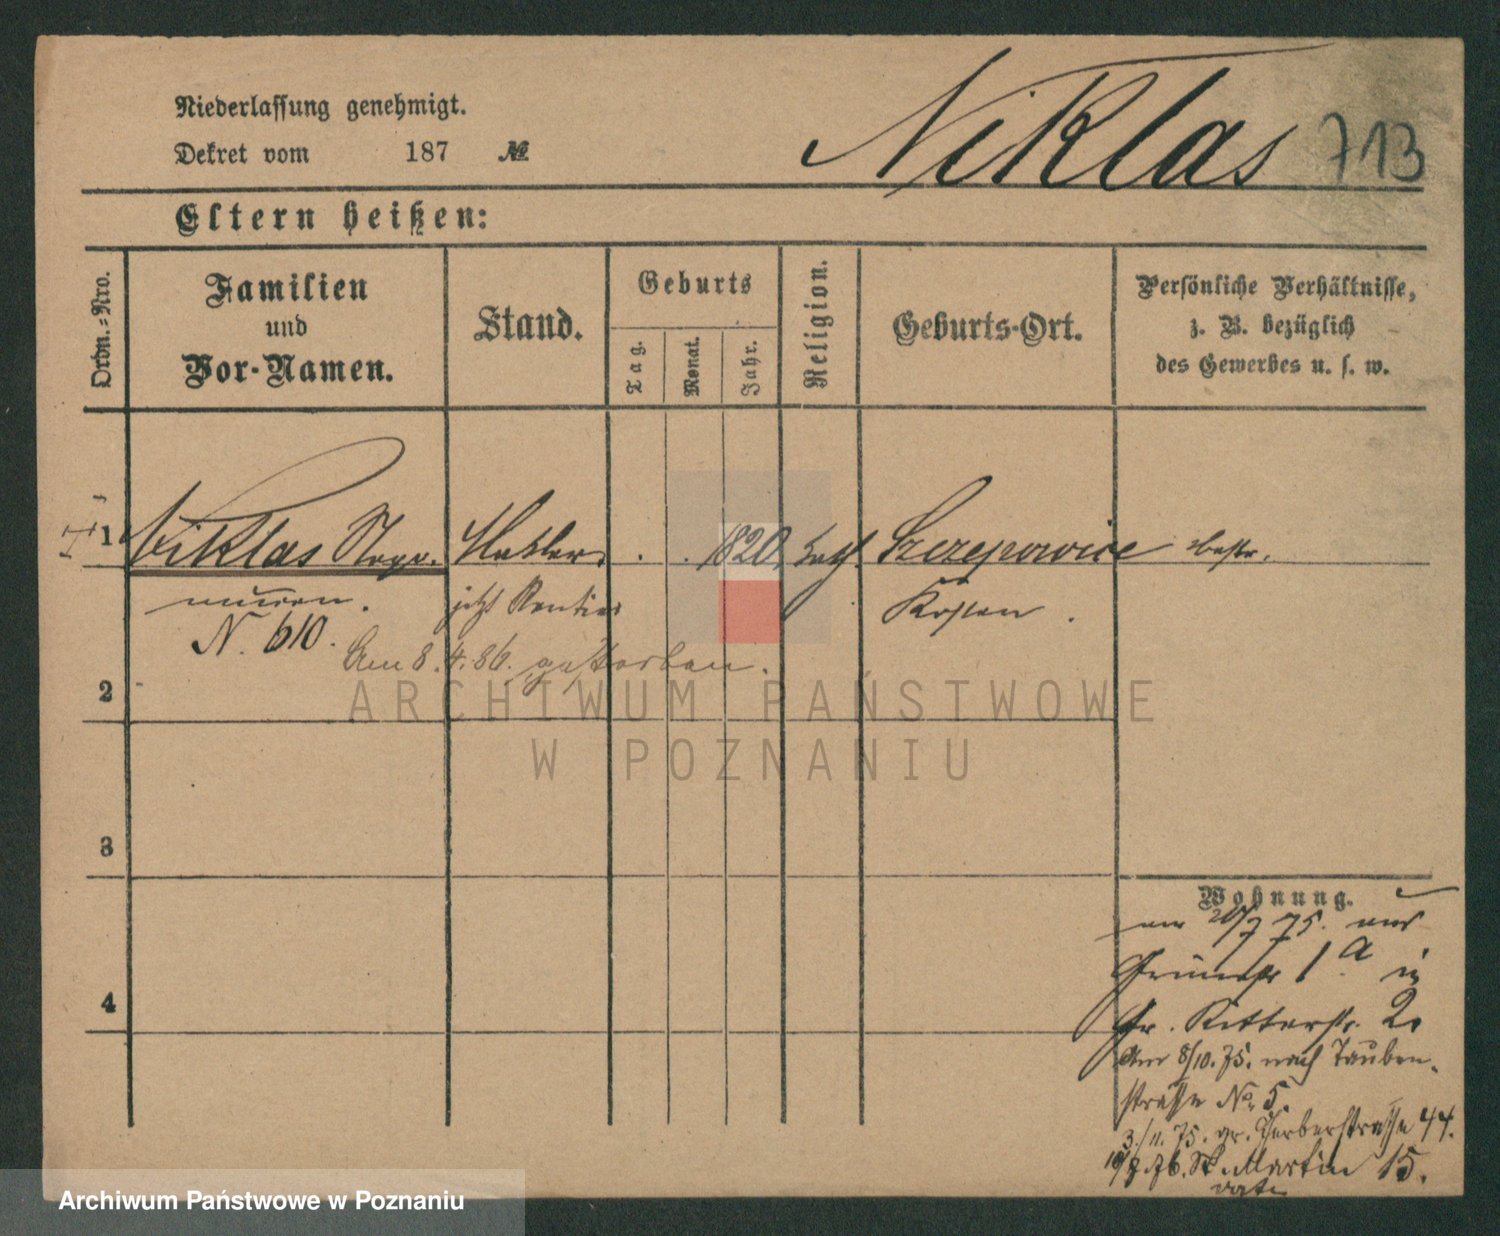 Niederlassung genehmigt.
Dekret vom 187 №
Niklas 713
Eltern heißen:
Ordn.-Nro.
Familien
und
Vor-Namen.
Stand.
Geburts
Tag.
Monat.
Jahr.
Religion.
Geburts-Ort.
Persönliche Verhältnisse,
z. B. bezüglich
des Gewerbes u. s. w.
1 Niklas 1820. kath. Szczepowice
jetzt Rentier Kosten.
N. 610.
Am 8.4.86. gestorben.
2
3
4
Wohnung.
am 20/7 75. aus
Grünestr 1a. in
Gr. Ritterstr. 2.
Am 8/10. 75. nach Tauben-
strasse No. 5.
3./11. 75. gr. Gerberstrasse 44.
St. Martin 15.
ARCHIWUM PAŃSTWOWE
W POZNANIU
Archiwum Państwowe w Poznaniu